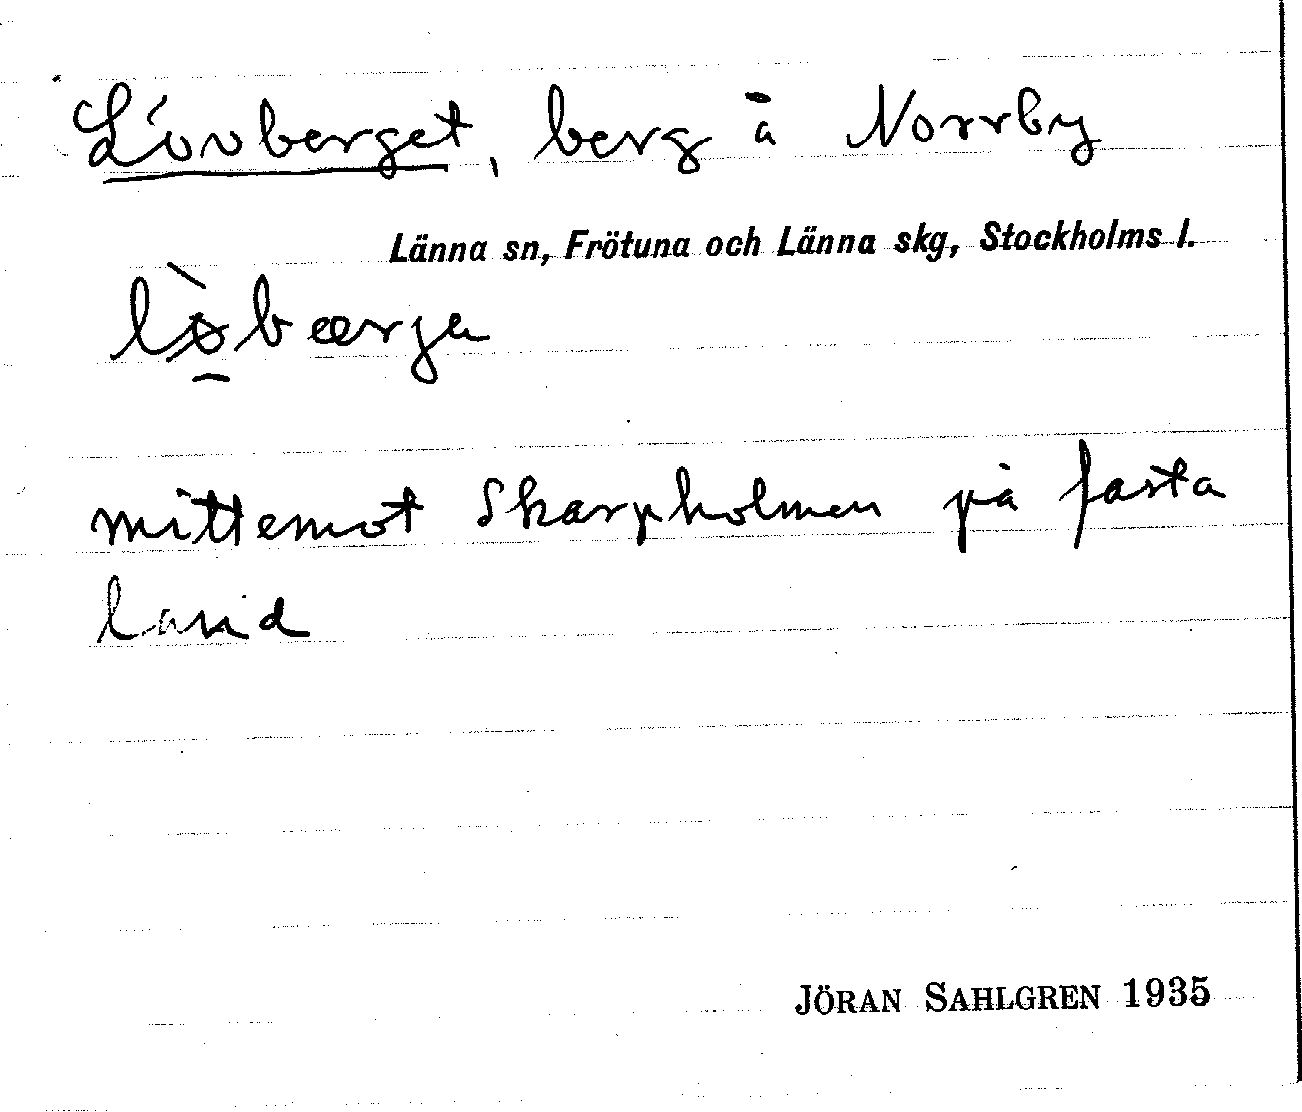 Lövberget, berg å Norrby
Länna sn, Frötuna och Länna skg, Stockholms l.
lø̱̀bærja
mittemot Skarpholmen på fasta
land
JÖRAN SAHLGREN 1935